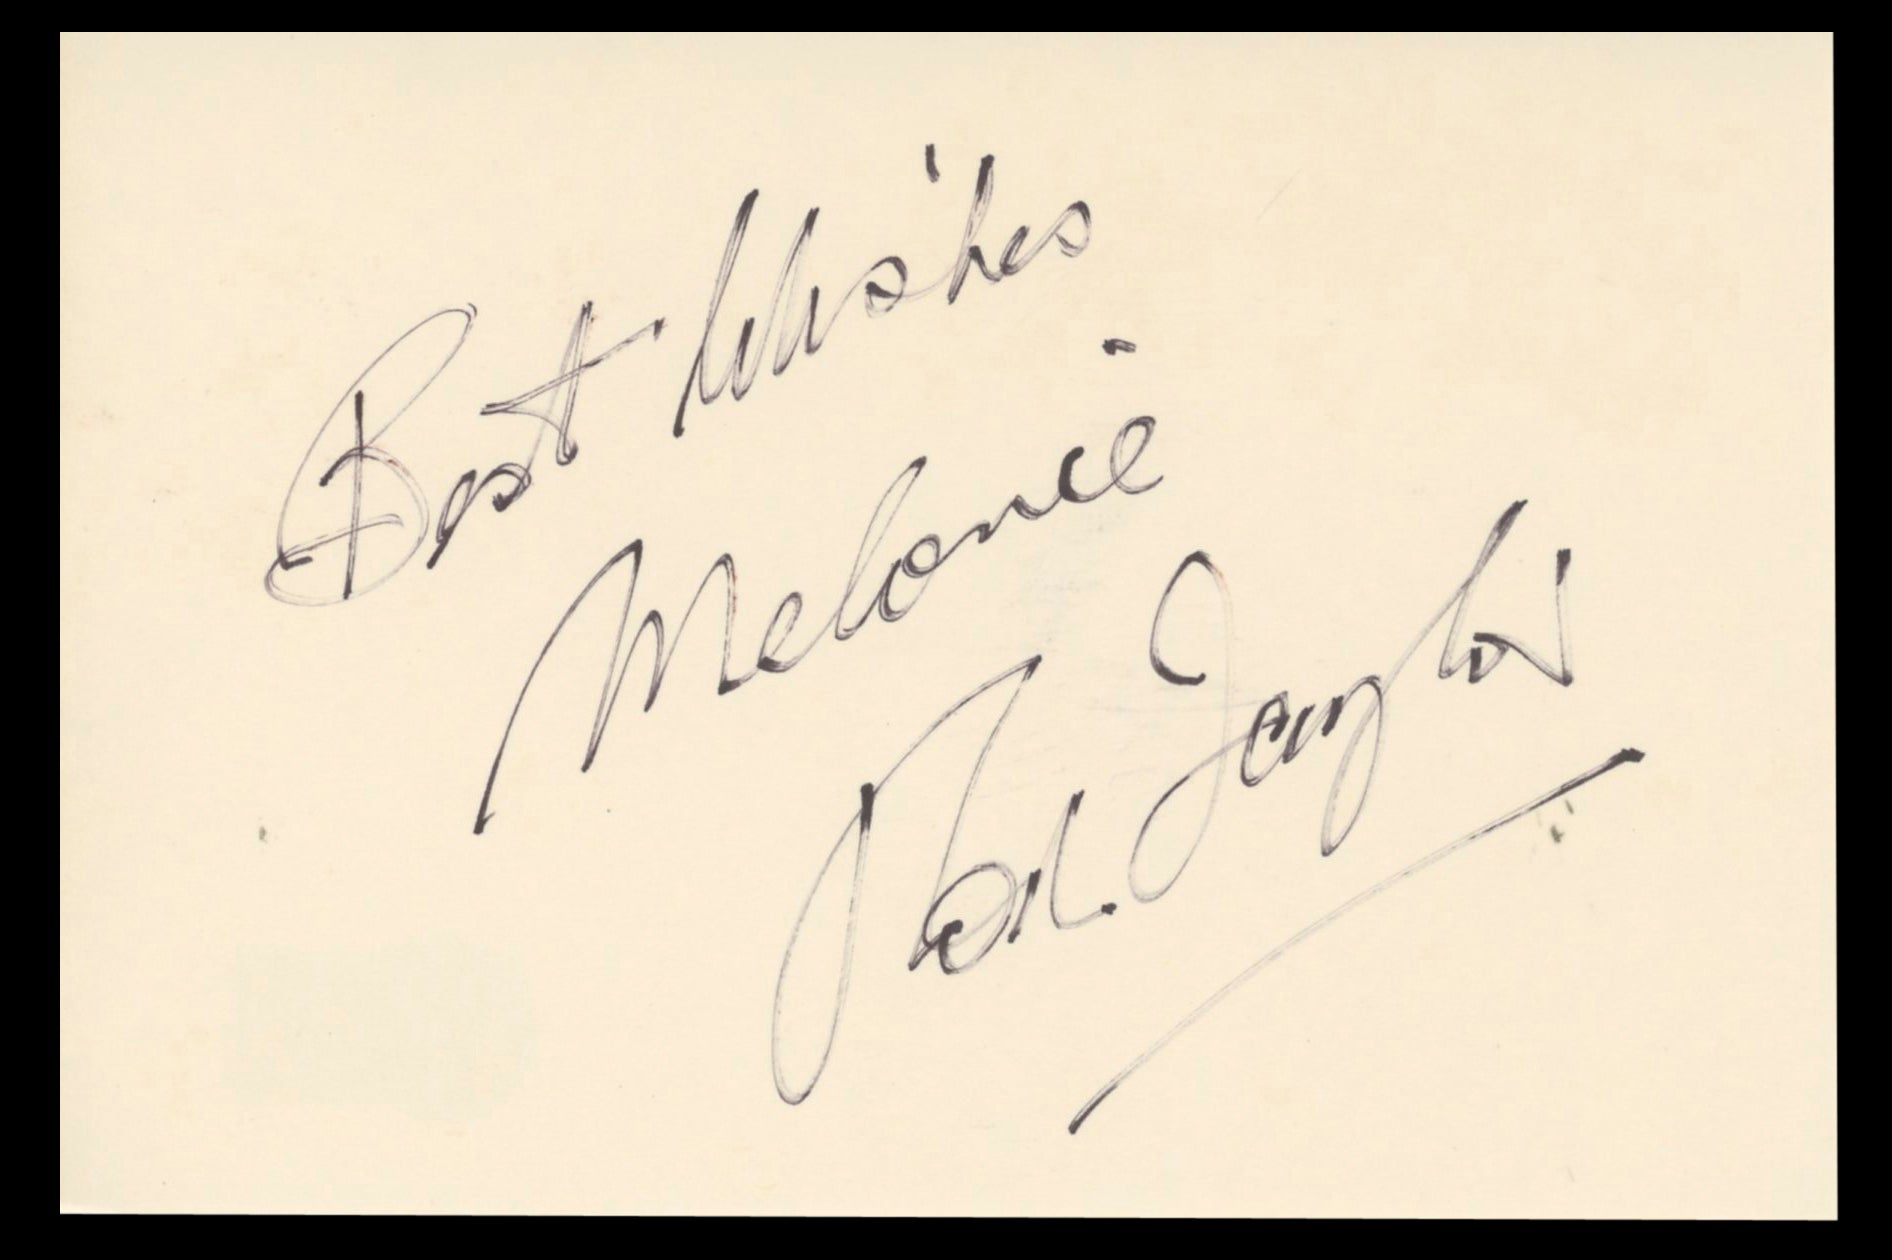 Best Wishes
Melanie
Rod Taylor